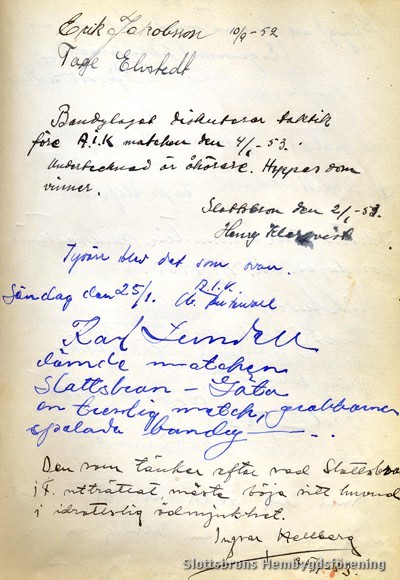 Erik Jakobsson 10/9-52
Tage Elvstedt
Bandylaget diskuterar taktik
före A.I.K matchen den 4/1-53.
Undertecknad är åkörare. Hoppas dom
vinner.
Slottsbron den 2/1-53.
Henry
Tyvärr blev det som ovan.
Söndag den 25/1. A.I.K.
Karl Lundell
dömde matchen
Slottsbron - Göta
en trevlig match, grabbarna
spelade bandy
Den som tänker efter vad Slottsbro
i F. uträttat måste böja sitt huvud
i idrottslig ödmjukhet.
Ingvar Hellberg
Slottsbrons Hembygdsförening